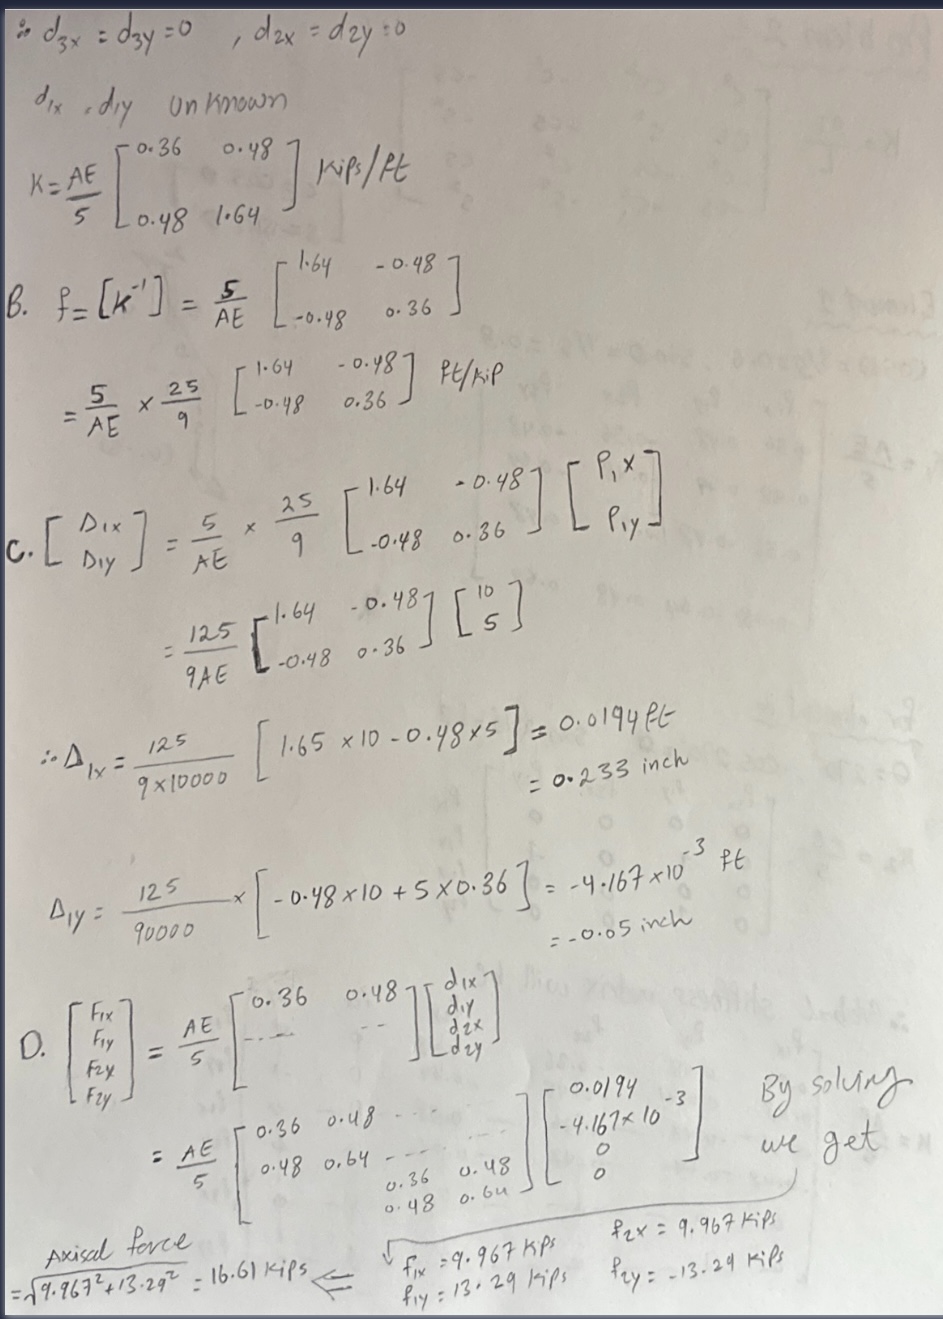 ∴ d3x = d3y = 0 , d2x = d2y = 0
d1x, d1y unknown
K = AE/5 [0.36 0.48; 0.48 1.64] Kips/ft
B. f = [k^-1] = 5/AE [1.64 -0.48; -0.48 0.36]
= 5/AE × 25/9 [1.64 -0.48; -0.48 0.36] ft/kip
C. [Δ1x; Δ1y] = 5/AE × 25/9 [1.64 -0.48; -0.48 0.36] [P1x; P1y]
= 125/9AE [1.64 -0.48; -0.48 0.36] [10; 5]
∴ Δ1x = 125/9×10000 [1.65 × 10 - 0.48 × 5] = 0.0194 ft
= 0.233 inch
Δ1y = 125/90000 × [-0.48 × 10 + 5 × 0.36] = -4.167 × 10^-3 ft
= -0.05 inch
D. [F1x; F1y; F2y; F2y] = AE/5 [0.36 0.48; ... --] [d1x; d1y; d2x; d2y]
= AE/5 [0.36 0.48 ...; 0.48 0.64 ...; 0.36 0.48; 0.48 0.64] [0.0194; -4.167 × 10^-3; 0; 0] By solving we get
Axisal force
= √9.967² + 13.29² = 16.61 Kips ⇐ f1x = 9.967 Kips f2x = 9.967 Kips
f1y = 13.29 Kips f2y = -13.29 Kips